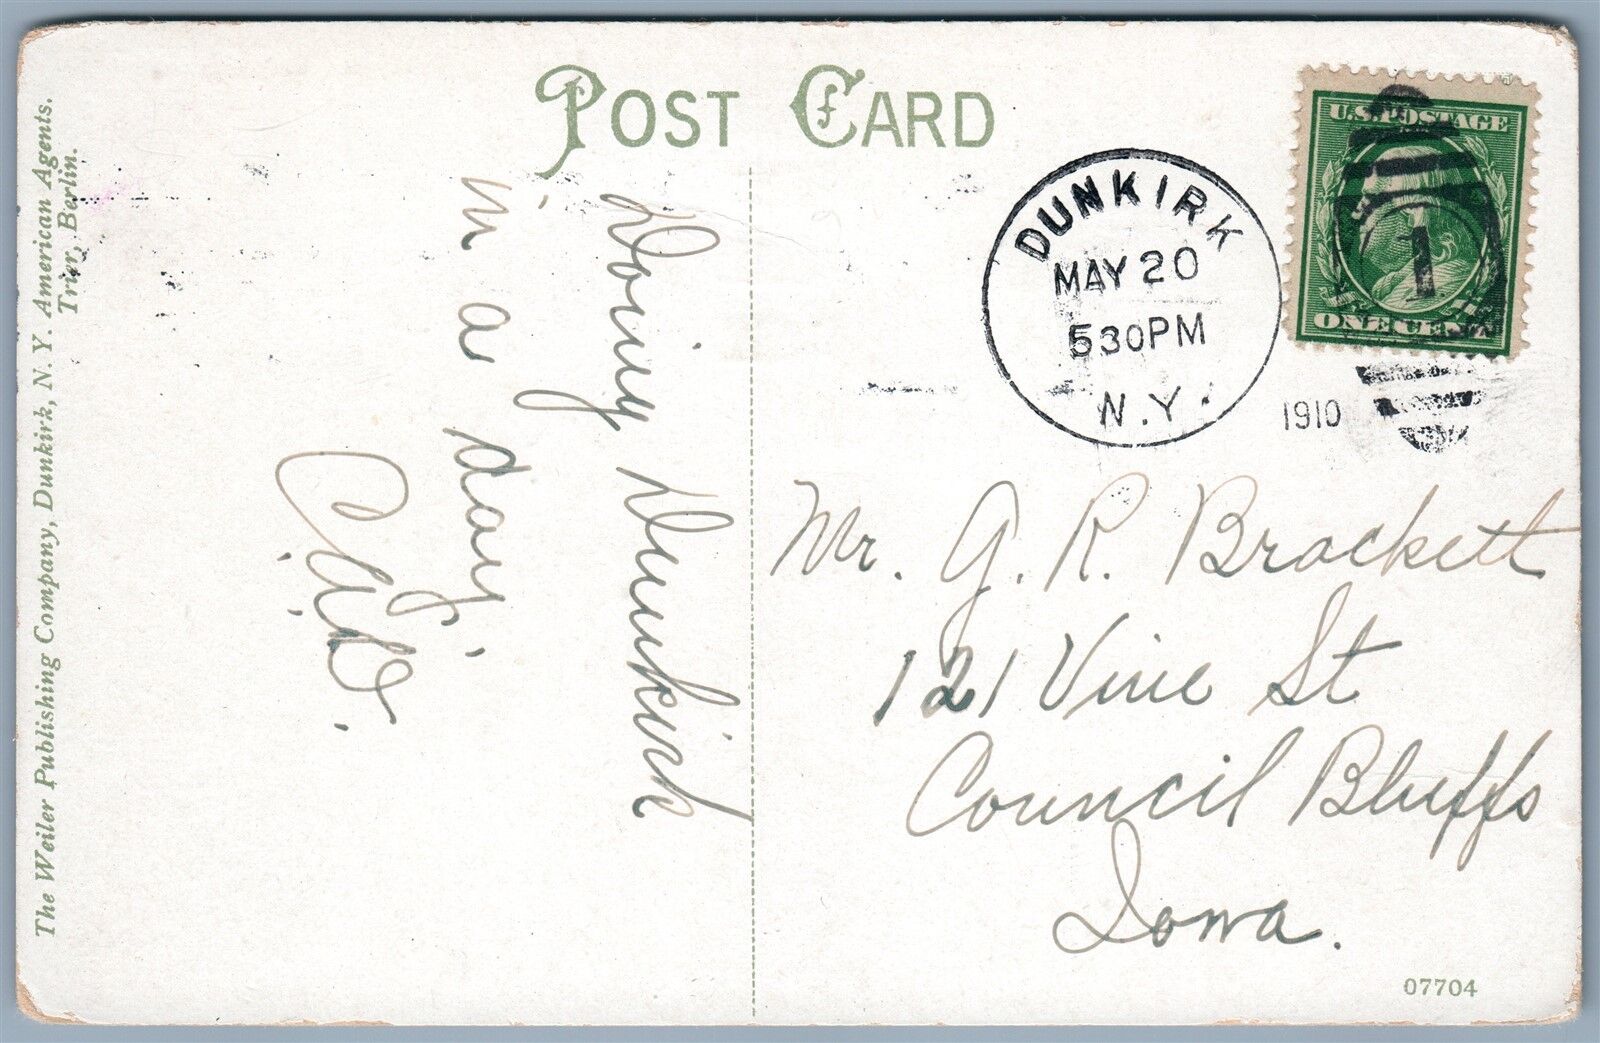 POST CARD
The Weiler Publishing Company, Dunkirk, N. Y. American Agents.
Trier, Berlin.
Doing Dunkirk
in a day.
C. A. D.
DUNKIRK
MAY 20
530PM
N.Y.
1910
U.S. POSTAGE
1
ONE CENT
Mr. G. R. Brackett
121 Vine St
Council Bluffs
Iowa.
07704